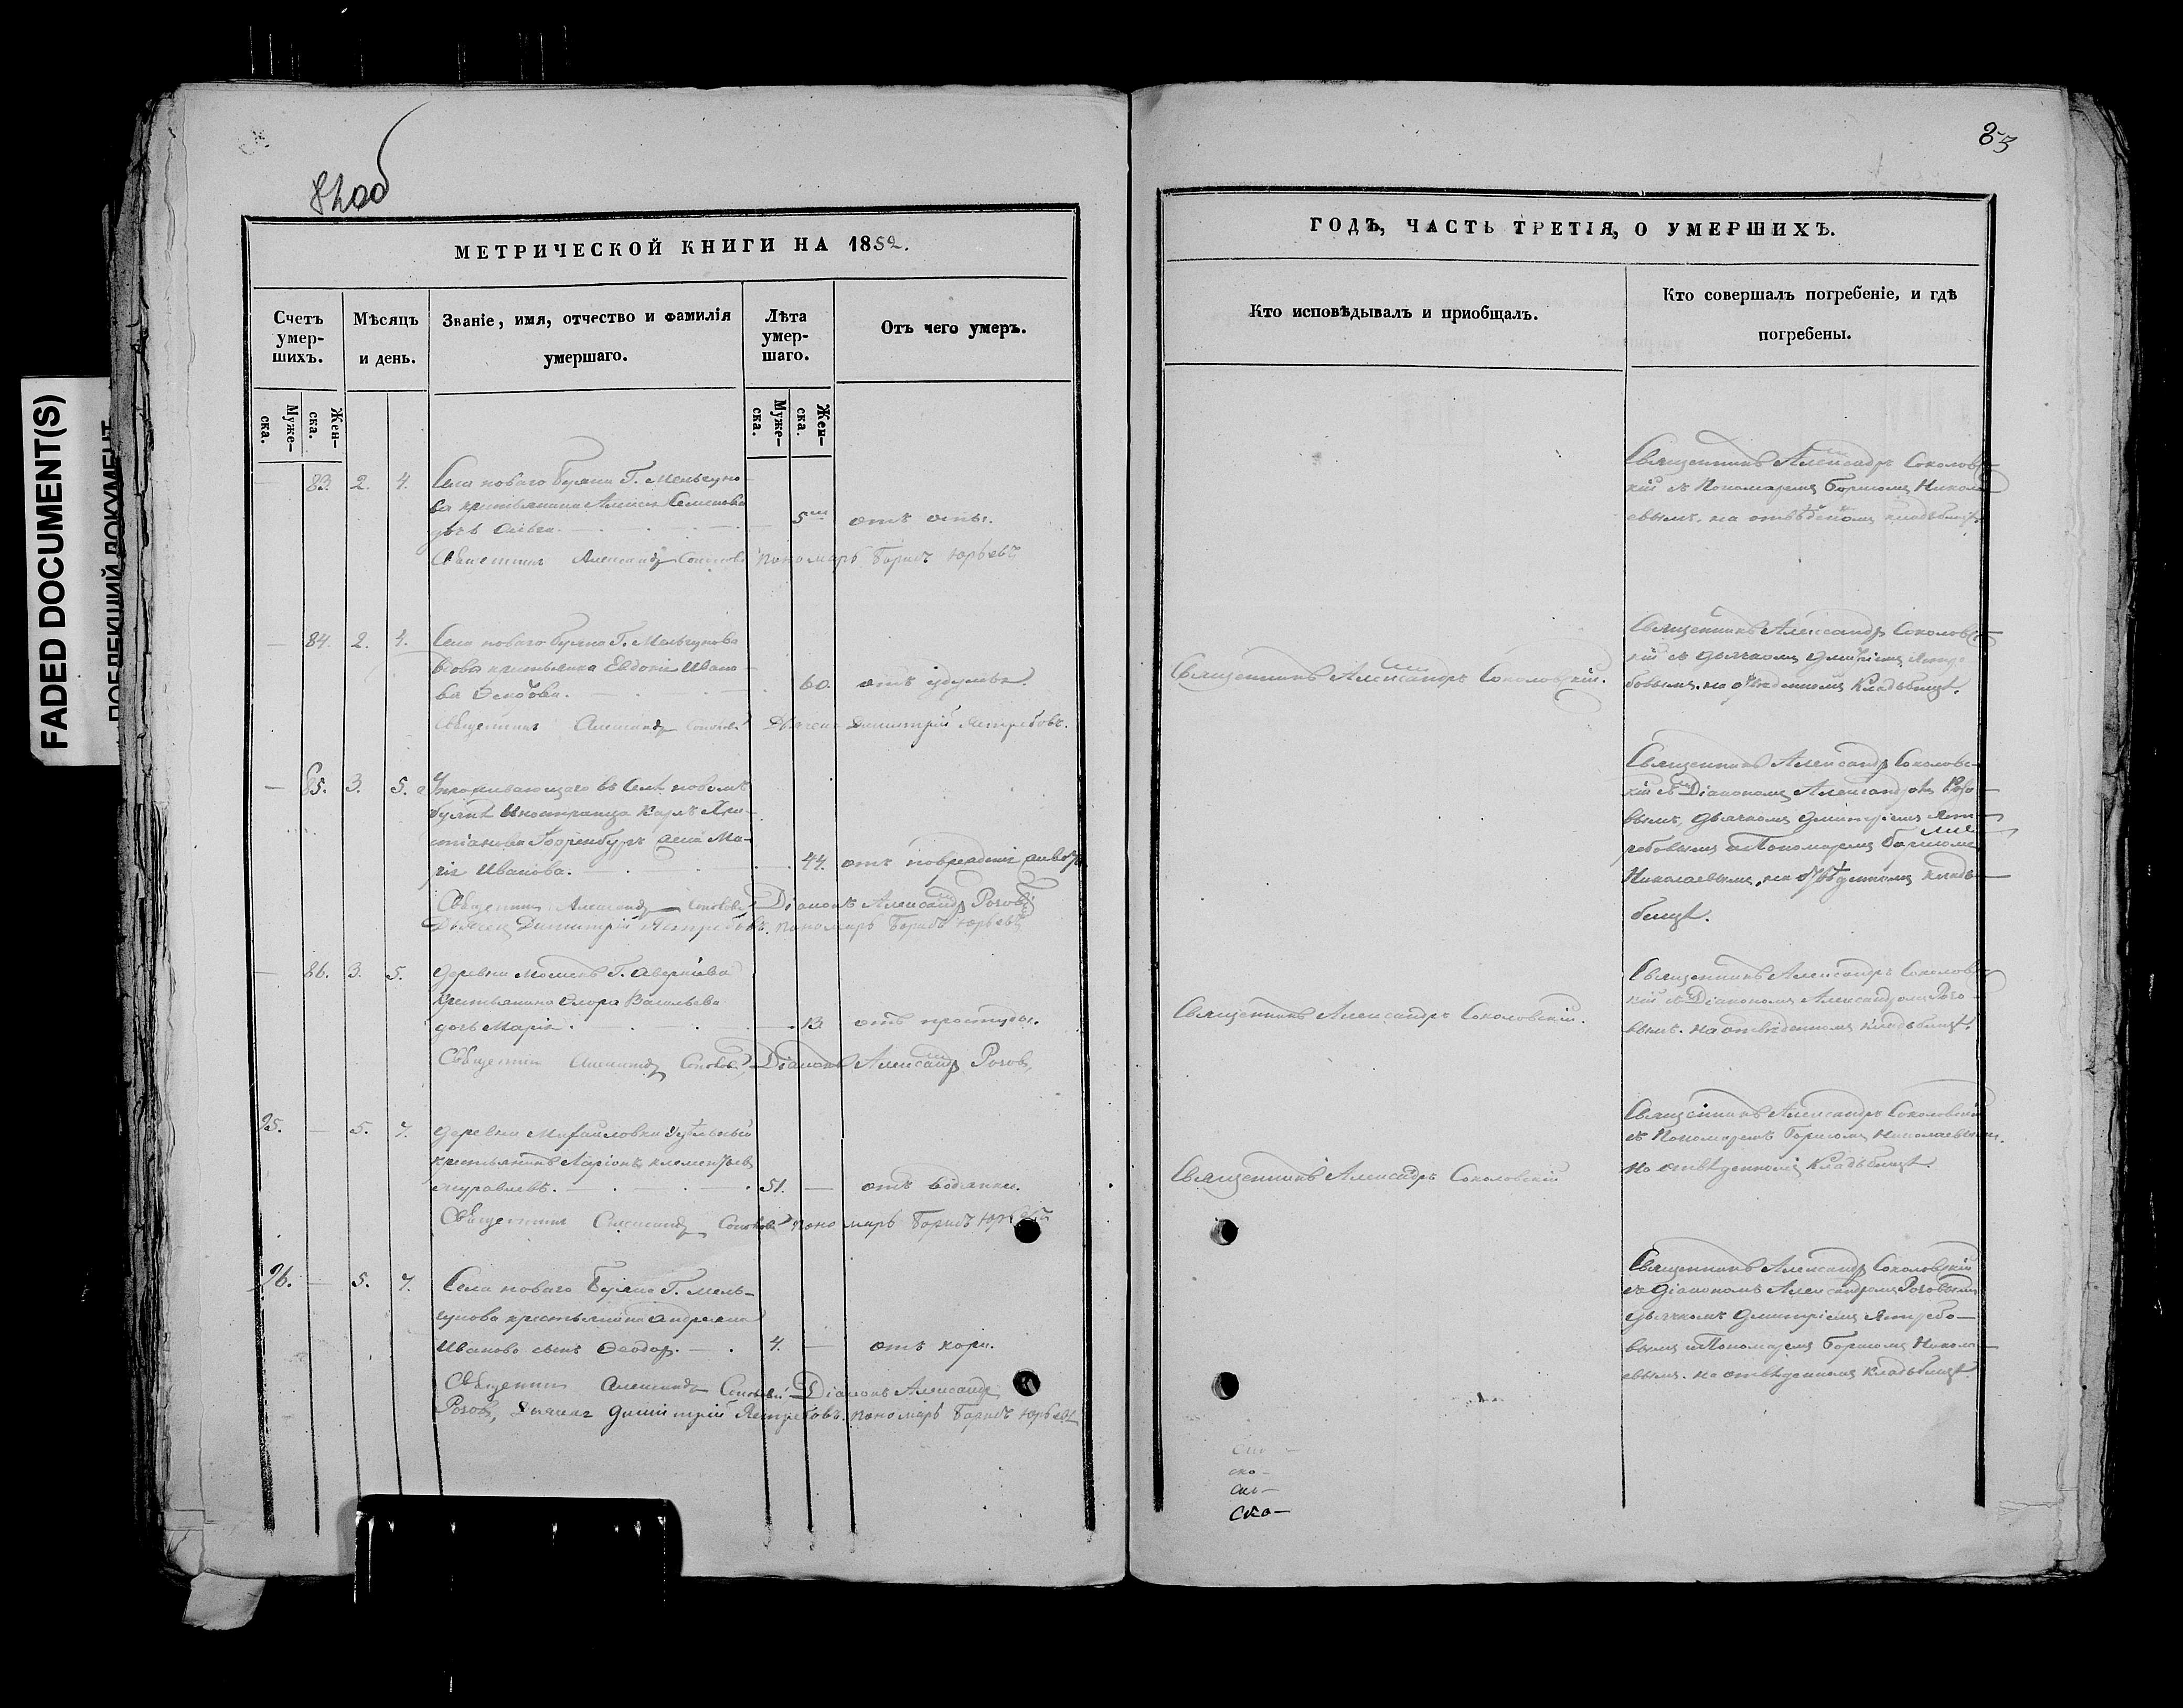 82 об
МЕТРИЧЕСКОЙ КНИГИ НА 1852.
Счетъ умер-шихъ.
Мѣсяцъ и день.
Званіе, имя, отчество и фамилія умершаго.
Лѣта умер-шаго.
Отъ чего умеръ.
Муже-ска.
Жен-ска.
Муже-ска.
Жен-ска.
83. 2. 4. Села новаго Буяна Г. Мельгуно-
ва крестьянина Алексея Семенова
дочь Ольга. 5 отъ оспы.
Священникъ Александръ Соколовскій Пономарь Борисъ Юрьевъ
84. 2. 4. Села новаго Буяна Г. Мельгунова
вдова крестьянка Евдокія Ивано-
ва 60. отъ удушья.
Священникъ Александръ Соколовскій Дьячекъ Димитрій Ястребовъ.
85. 3. 5. Проживающаго въ селѣ новомъ
буянѣ Иностранца Карла Хри-
стіанова жена Ма-
рія Иванова. 44. отъ поврежденія
Священникъ Александръ Соколовскій Діаконъ Александръ Роговъ
Дьячекъ Димитрій Ястребовъ. пономарь Борисъ Юрьевъ
86. 3. 5. деревни Г. Аверкіева
крестьянина Флора Васильева
дочь Марія. 13. отъ простуды.
Священникъ Александръ Соколовскій, Діаконъ Александръ Роговъ,
25. 5. 7. деревни Михайловки Удѣльный
крестьянинъ Ларіонъ Клементьевъ
журавлевъ. 51. отъ водянки.
Священникъ Александръ Соколовскій пономарь Борисъ Юрьевъ
26. 5. 7. Села новаго Буяна Г. Мель-
гунова крестьянина Андреяна
Иванова сынъ Ѳеодоръ. 4. отъ кори.
Священникъ Александръ Соколовскій Діаконъ Александръ
Роговъ, Дьячекъ Димитрій Ястребовъ. пономарь Борисъ Юрьевъ
83
ГОДЪ, ЧАСТЬ ТРЕТІЯ, О УМЕРШИХЪ.
Кто исповѣдывалъ и пріобщалъ.
Кто совершалъ погребеніе, и гдѣ погребены.
Священникъ Александръ Соколовс-
кій съ Пономаремъ Борисомъ Никола-
евымъ. на отвѣденномъ кладбищѣ.
Священникъ Александръ Соколовскій.
Священникъ Александръ Соколовс-
кій съ дьячкомъ Димитріемъ Ястре-
бовымъ. на отведенномъ Кладьбищѣ.
Священникъ Александръ Соколовс-
кій съ Діакономъ Александромъ Рого-
вымъ, дьячкомъ Димитріемъ Яст-
ребовымъ и Пономаремъ Борисомъ
Николаевымъ, на отвѣденномъ кладь-
бищѣ.
Священникъ Александръ Соколовскій.
Священникъ Александръ Соколовс-
кій съ Діакономъ Александромъ Рого-
вымъ. на отвѣденномъ кладьбищѣ.
Священникъ Александръ Соколовскій
Священникъ Александръ Соколовскій
съ Пономаремъ Борисомъ Николаевымъ.
на отвѣденномъ Кладьбищѣ.
Священникъ Александръ Соколовскій
съ Діакономъ Александромъ Роговымъ
дьячкомъ Димитріемъ Ястребо-
вымъ и Пономаремъ Борисомъ Никола-
евымъ. на отвѣденномъ Кладьбищѣ.
ско-
ско-
ско-
FADED DOCUMENT(S)